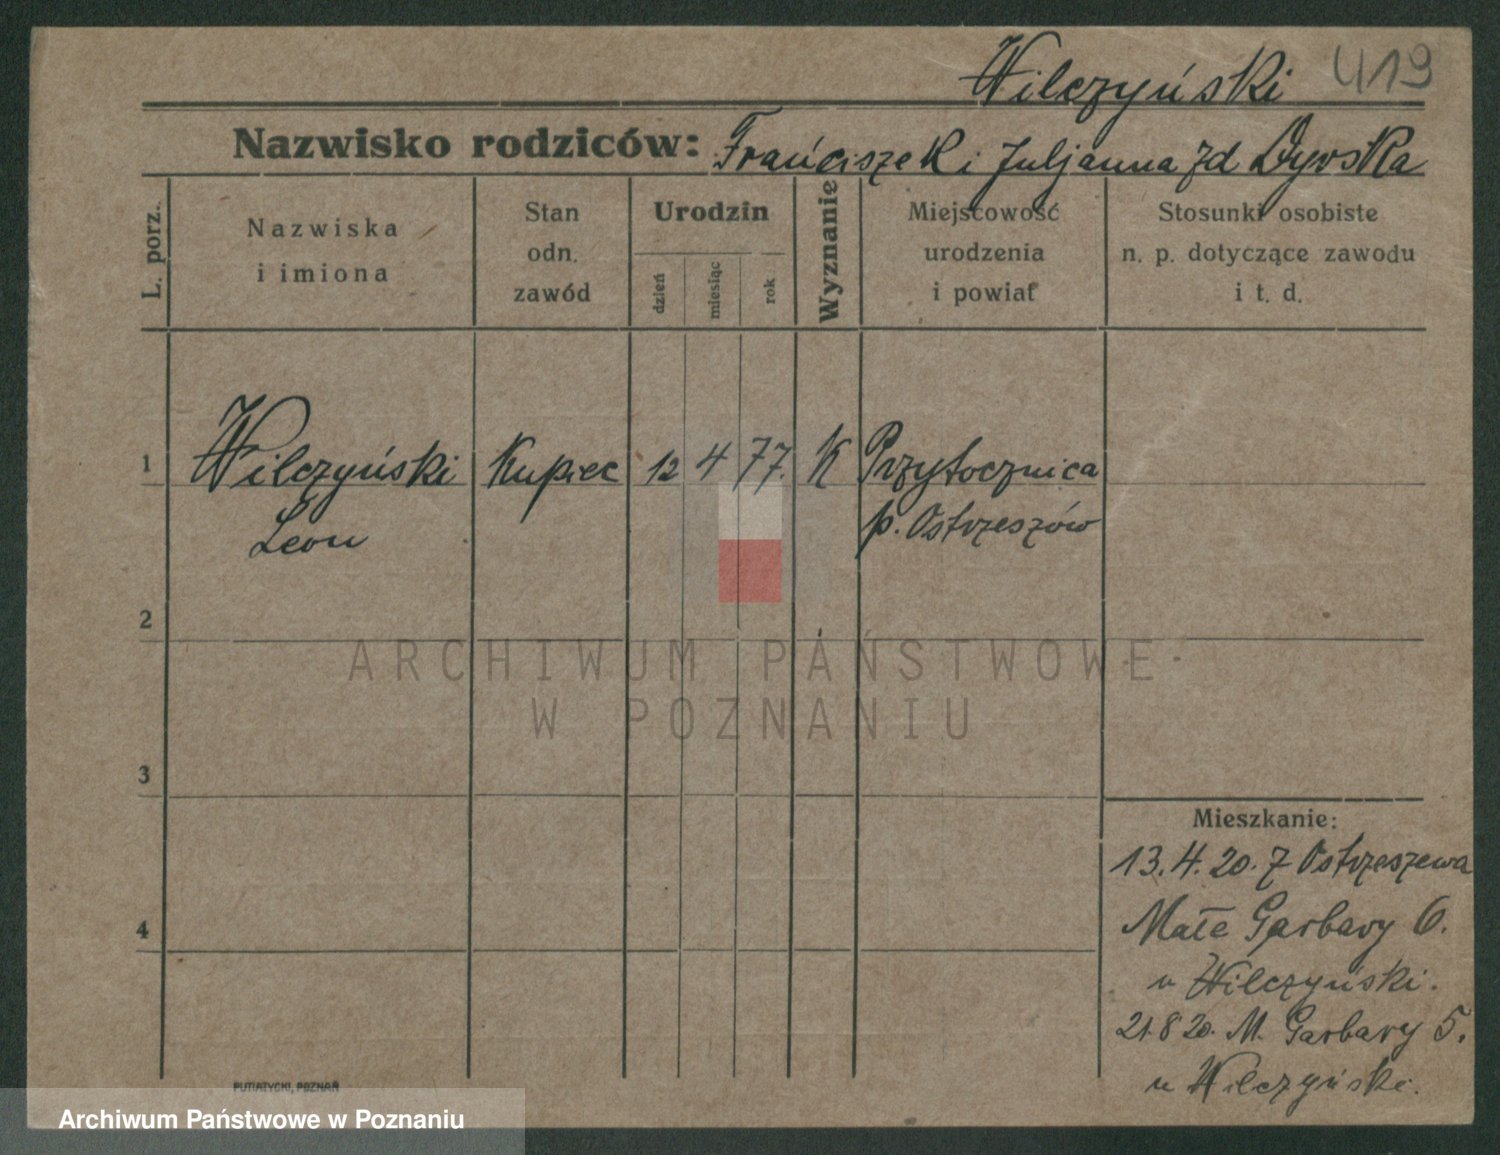 Wilczyński 419
Nazwisko rodziców: Frańciszek i Juljanna zd Dyrska
L. porz.
Nazwiska
i imiona
Stan
odn.
zawód
Urodzin
dzień
miesiąc
rok
Wyznanie
Miejscowość
urodzenia
i powiat
Stosunki osobiste
n. p. dotyczące zawodu
i t. d.
1 Wilczyński Kupiec 12 4 77. K Przytocznica
Leon p. Ostrzeszów
2
ARCHIWUM PAŃSTWOWE
W POZNANIU
3
Mieszkanie:
13.4.20. z Ostrzeszewa
4 Małe Garbary 6.
u Wilczyński.
21.8 20. M. Garbary 5.
u Wilczyński.
PUTIATYCKI, POZNAŃ
Archiwum Państwowe w Poznaniu